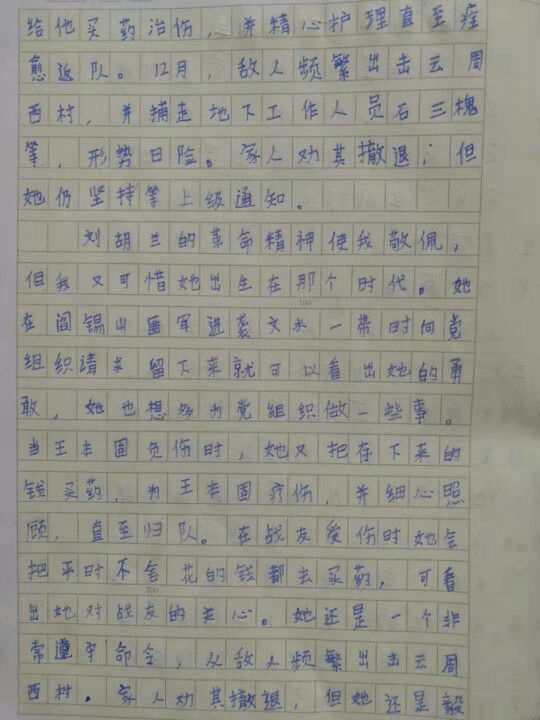 给他买药治伤，并精心护理直至痊
愈返队。12月，敌人频繁出击云周
西村，并捕走地下工作人员石三槐
等，形势日险。家人劝其撤退；但
她仍坚持等上级通知。
刘胡兰的革命精神使我敬佩，
但我又可惜她出生在那个时代。她
在阎锡山匪军进袭文水一带时向党
组织请求留下来就可以看出她的勇
敢，她也想多为党组织做一些事。
当王本固负伤时，她又把存下来的
钱买药，为王本固疗伤，并细心照
顾，直至归队。在战友爱伤时她会
把平时不舍花的钱都去买药，可看
出她对战友的关心。她还是一个非
常遵守命令，从敌人频繁出击云周
西村。家人劝其撤退，但她还是毅
100
200